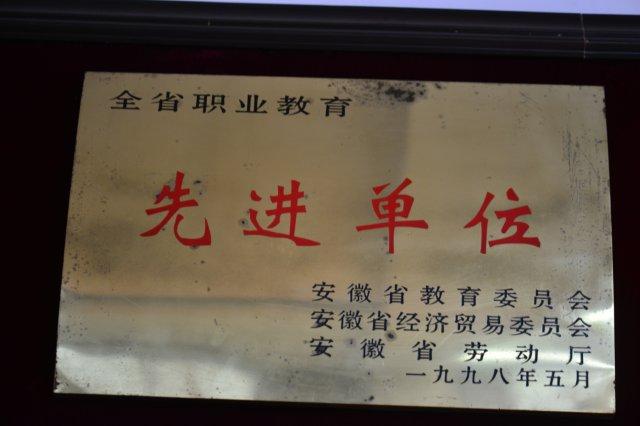 全省职业教育
先进单位
安徽省教育委员会
安徽省经济贸易委员会
安徽省劳动厅
一九九八年五月